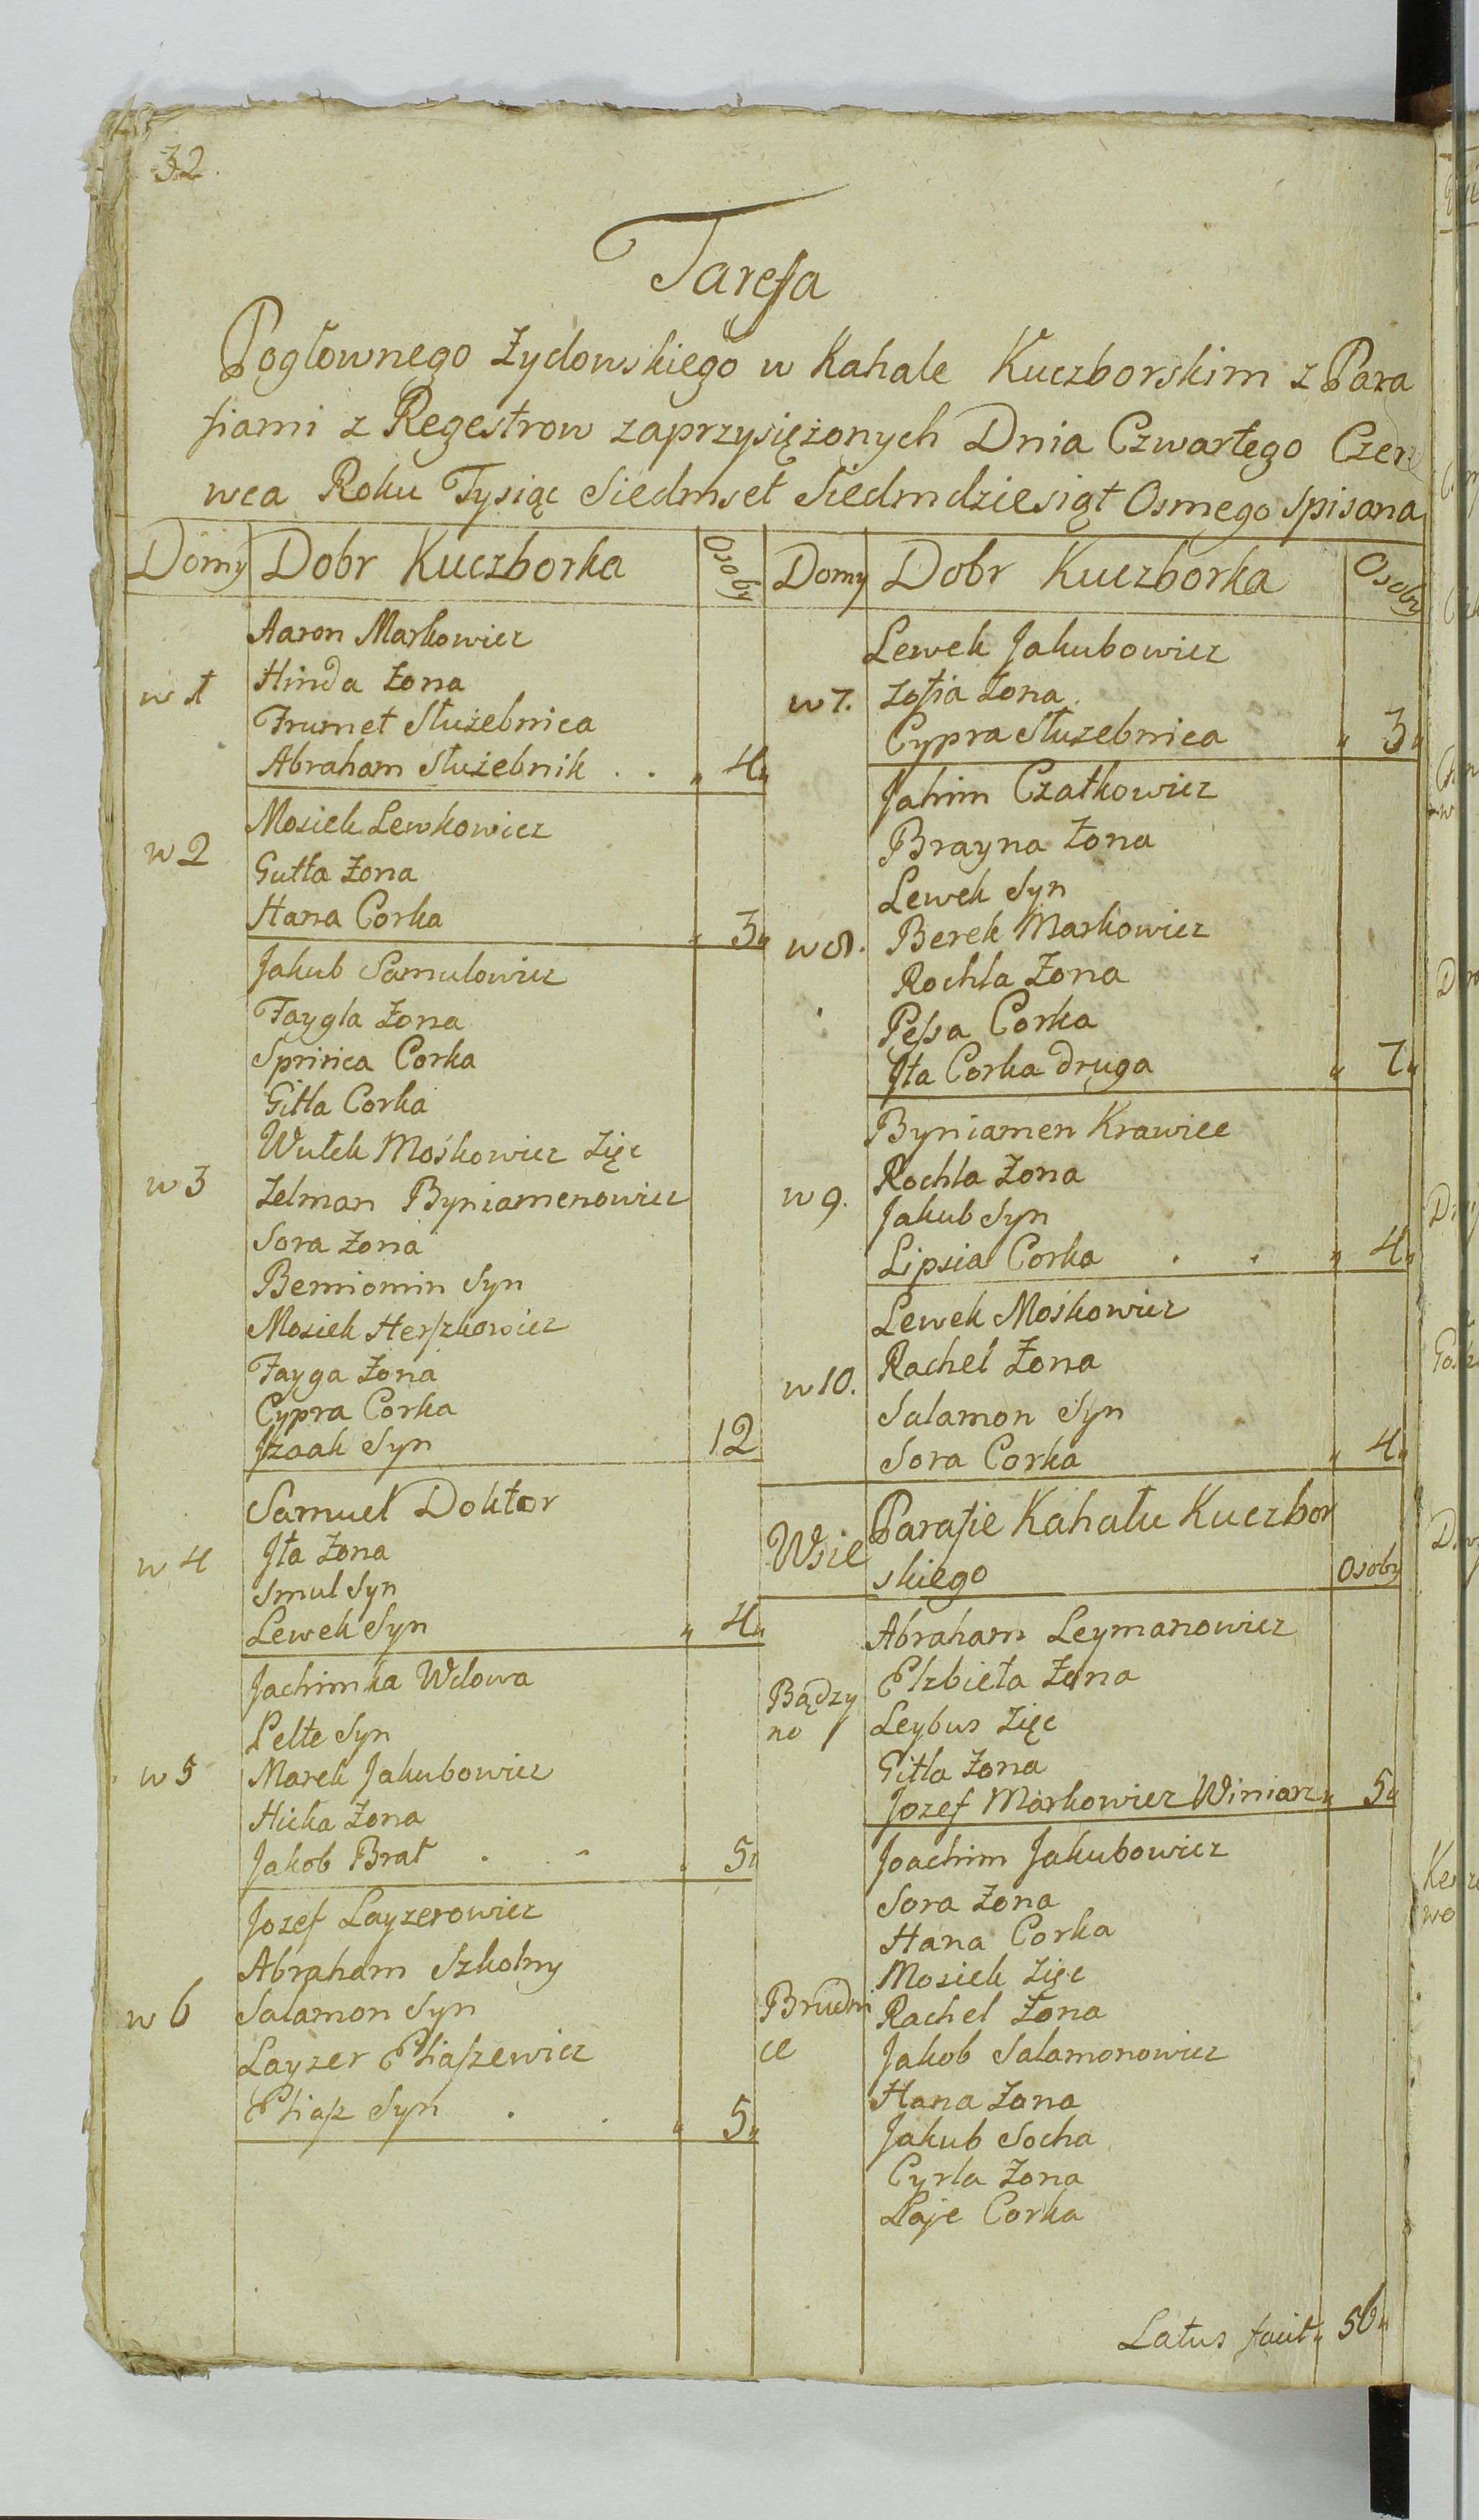 32.
Taressa
Pogłownego Zydowskiego w Kahale Kuczborskim z Para
fiami z Regestrow zaprzysiężonych Dnia Czwartego Czer
wca Roku Tysiąc Siedmset Siedmdziesiąt Osmego spisana
Domy Dobr Kuczborka Osoby
Aaron Markowicz
w 1 Hinda Zona
Frumet Służebnica
Abraham Służebnik . . „ 4„
Mosiek Lewkowicz
w 2 Gutta Zona
Hana Corka „ 3„
Jakub Samulowicz
Faygla Zona
Sprinca Corka
Gitla Corka
Wulek Mośkowicz Zięc
w 3 Zelman Byniamenowicz
Sora Zona
Bemiomin Syn
Mosiek Herszkowicz
Fayga Zona
Cypra Corka
Jzaak Syn 12
Samuel Doktor
w 4 Jta Zona
Smul Syn
Lewek Syn „ 4„
Jachimka Wdowa
Pelte Syn
w 5 Marek Jakubowicz
Hicka Zona
Jakob Brat . . „ 5„
Jozef Layzerowicz
Abraham Szkolny
w 6 Salamon Syn
Layzer Eliaszewicz
Eliasz Syn . . „ 5„
Domy Dobr Kuczborka Osoby
Lewek Jakubowicz
w 7. Zofia Zona
Cypra Służebnica „ 3„
Jahim Czatkowicz
Brayna Zona
Lewek Syn
w 8. Berek Markowicz
Rochla Zona
Pessa Corka
Jta Corka druga „ 7„
Byniamen Krawiec
w 9. Rochla Zona
Jakub Syn
Lipsia Corka . . „ 4„
Lewek Mośkowicz
w 10. Rachel Zona
Salamon Syn
Sora Corka „ 4„
Wsie Parafie Kahału Kuczbor
skiego Osoby
Abraham Leymanowicz
Bądzy Elzbieta Zona
no Leybus Zięc
Gitla Zona
Jozef Markowicz Winiarz „ 5„
Joachim Jakubowicz
Sora Zona
Hana Corka
Mosiek Zięc
Brudni Rachel Zona
ce Jakob Salamonowicz
Hana Zona
Jakub Socha
Cyrla Zona
Laje Corka
Latus facit „ 56„